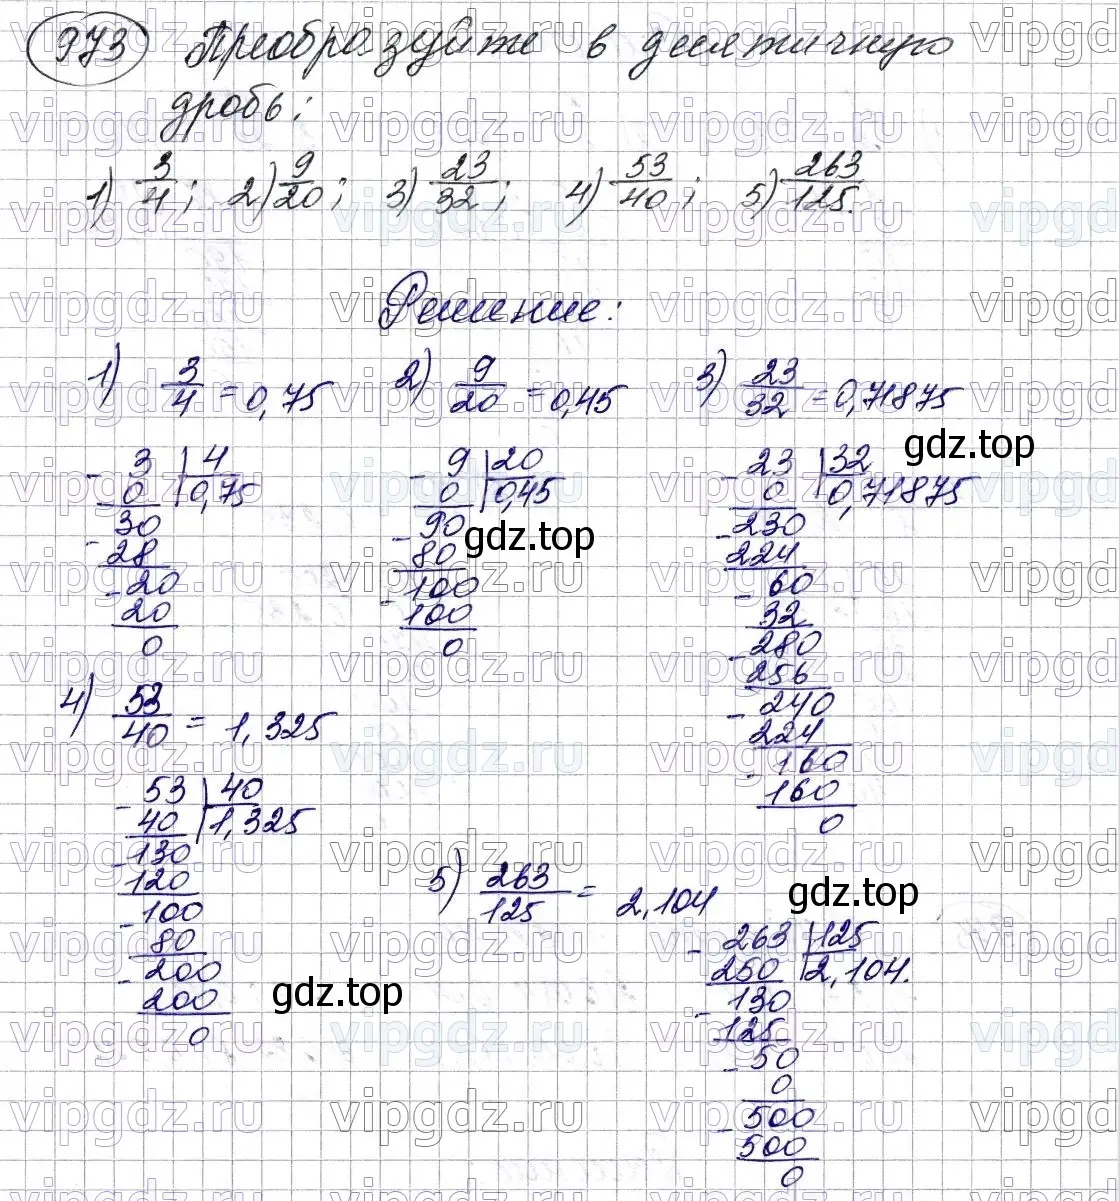 973 Преобразуйте в десятичную
дробь:
1) 3/4; 2) 9/20; 3) 23/32; 4) 53/40; 5) 263/125.
Решение:
1) 3/4 = 0,75
2) 9/20 = 0,45
3) 23/32 = 0,71875
- 3 | 4
- 0 | 0,75
30
- 28
- 20
20
0
- 9 | 20
0 | 0,45
- 90
80
- 100
100
0
- 23 | 32
0 | 0,71875
- 230
224
- 60
32
- 280
256
- 240
224
- 160
160
0
4) 53/40 = 1,325
- 53 | 40
40 | 1,325
- 130
120
- 100
80
- 200
200
0
5) 263/125 = 2,104
- 263 | 125
250 | 2,104.
- 130
125
- 50
0
- 500
500
0
gdz.top
gdz.top
gdz.top
gdz.top
vipgdz.ru